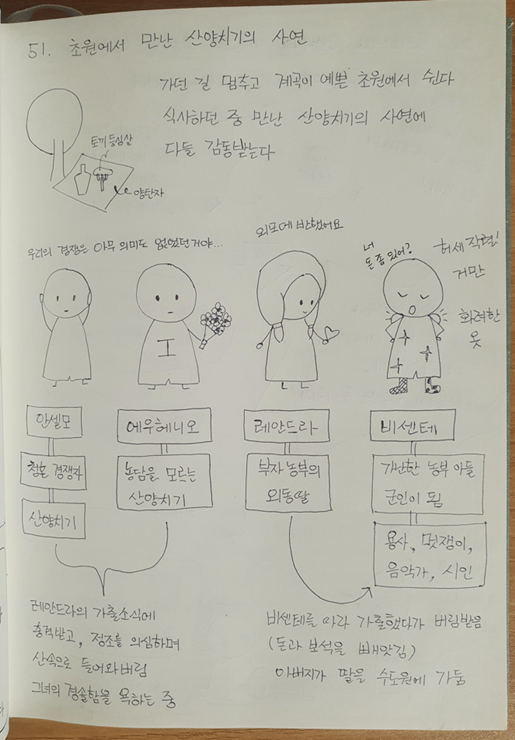 51. 초원에서 만난 산양치기의 사연
가던 길 멈추고 계곡이 예쁜 초원에서 쉰다
식사하던 중 만난 산양치기의 사연에
다들 감동받는다
토끼 등심살
양탄자
우리의 경쟁은 아무 의미도 없었던거야...
외모에 반했어요
너
돈 좀 있어?
허세 작렬!
거만
화려한
옷
I
안셀모
청혼 경쟁자
산양치기
에우헤니오
농담을 모르는
산양치기
레안드라
부자 농부의
외동딸
비센테
가난한 농부 아들
군인이 됨
용사, 멋쟁이,
음악가, 시인
레안드라의 가출소식에
충격받고, 정조를 의심하며
산속으로 들어와버림
그녀의 경솔함을 욕하는 중
비센테를 따라 가출했다가 버림받음
(돈과 보석을 빼앗김)
아버지가 딸을 수도원에 가둠